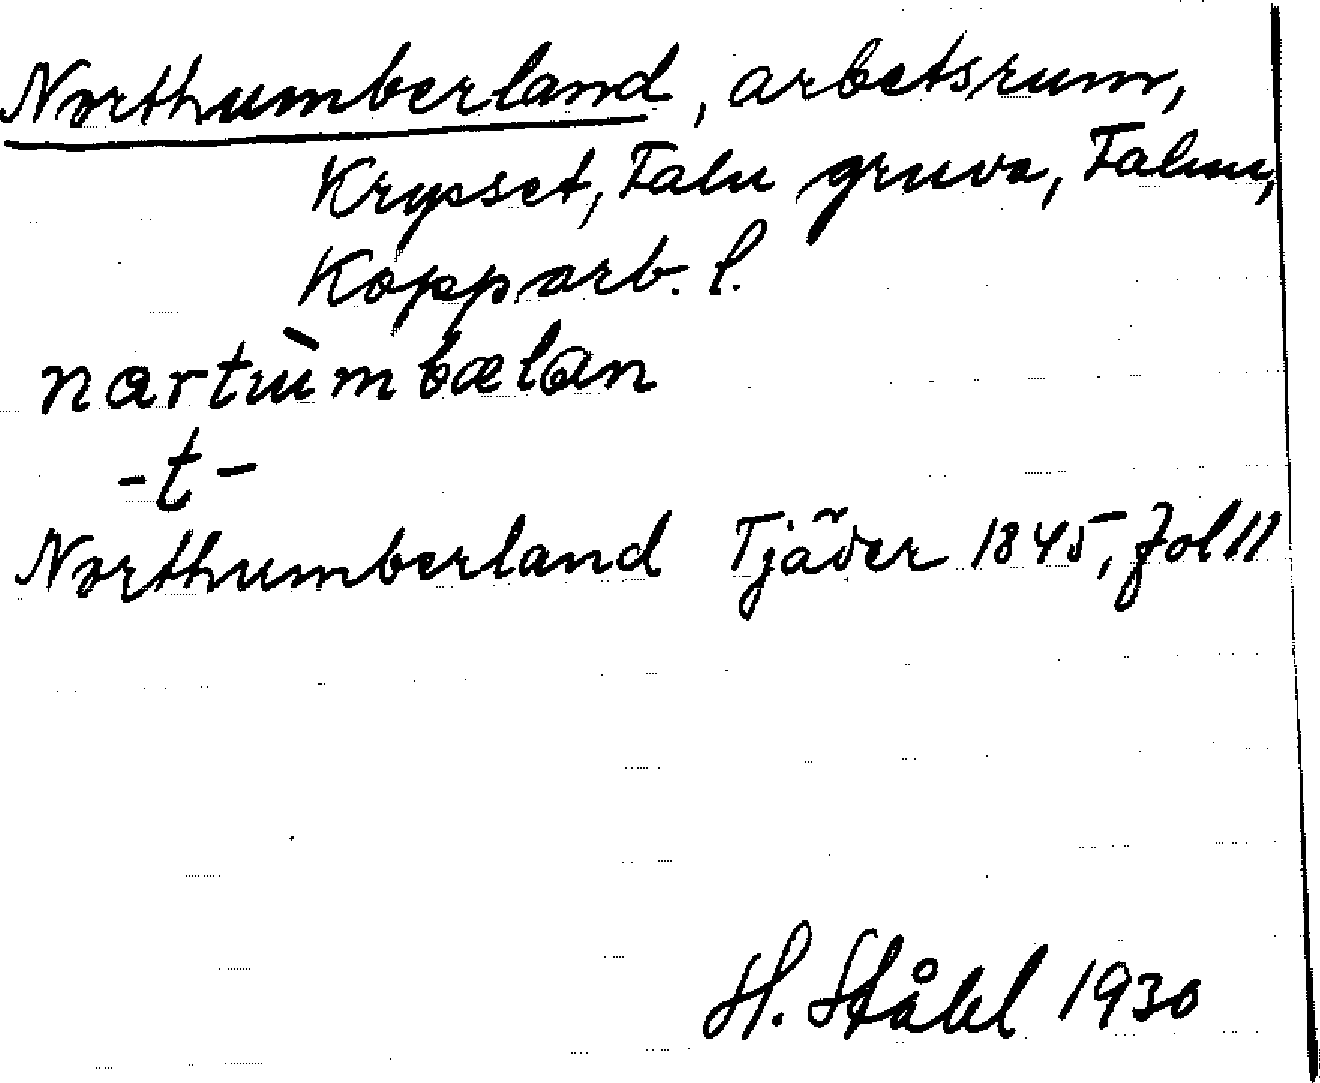 Northumberland, arbetsrum,
Krysset, Falu gruva, Falun,
Kopparb. l.
nartùmbælan
-t-
Northumberland Tjäder 1845, fol 11
H. Ståhl 1930